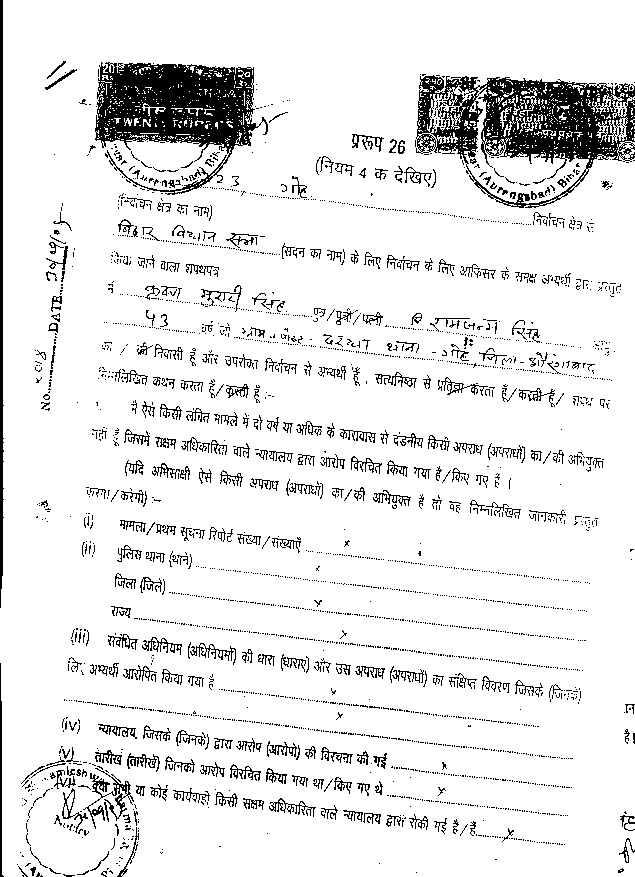 TWENTY RUPEES
(Aurangabad) Bihar
(Aurangabad) Bihar
प्ररूप 26
(नियम 4 क देखिए)
गोह
(निर्वाचन क्षेत्र का नाम) निर्वाचन क्षेत्र से
बिहार विधान सभा (सदन का नाम) के लिए निर्वाचन के लिए आफिसर के समक्ष अभ्यर्थी द्वारा प्रस्तुत
किया जाने वाला शपथपत्र
मैं कृष्ण मुरारी सिंह पुत्र/पुत्री/पत्नी रामजन्म सिंह आयु
वर्ष जो ग्राम पोस्ट थाना - गोह, जिला - औरंगाबाद
का / की निवासी हूँ और उपरोक्त निर्वाचन से अभ्यर्थी हूँ, सत्यनिष्ठा से प्रतिज्ञा करता हूँ/करती हूँ/ शपथ पर
निम्नलिखित कथन करता हूँ/करती हूँ :-
मैं ऐसे किसी लंबित मामले में दो वर्ष या अधिक के कारावास से दंडनीय किसी अपराध (अपराधों) का/की अभियुक्त
नहीं हूँ जिसमें सक्षम अधिकारिता वाले न्यायालय द्वारा आरोप विरचित किया गया है/किए गए हैं ।
(यदि अभिसाक्षी ऐसे किसी अपराध (अपराधों) का/की अभियुक्त है तो वह निम्नलिखित जानकारी प्रस्तुत
करेगा/करेगी) :-
(i) मामला/प्रथम सूचना रिपोर्ट संख्या/संख्याएँ x
(ii) पुलिस थाना (थाने) x
जिला (जिले) x
राज्य x
(iii) संबंधित अधिनियम (अधिनियमों) की धारा (धाराएं) और उस अपराध (अपराधों) का संक्षिप्त विवरण जिसके (जिनके)
लिए अभ्यर्थी आरोपित किया गया है x
x
(iv) न्यायालय, जिसके (जिनके) द्वारा आरोप (आरोपों) की विरचना की गई x
(v) तारीख (तारीखें) जिनको आरोप विरचित किया गया था/किए गए थे x
क्या सभी या कोई कार्यवाही किसी सक्षम अधिकारिता वाले न्यायालय द्वारा रोकी गई है/हैं x
No. DATE
Notary